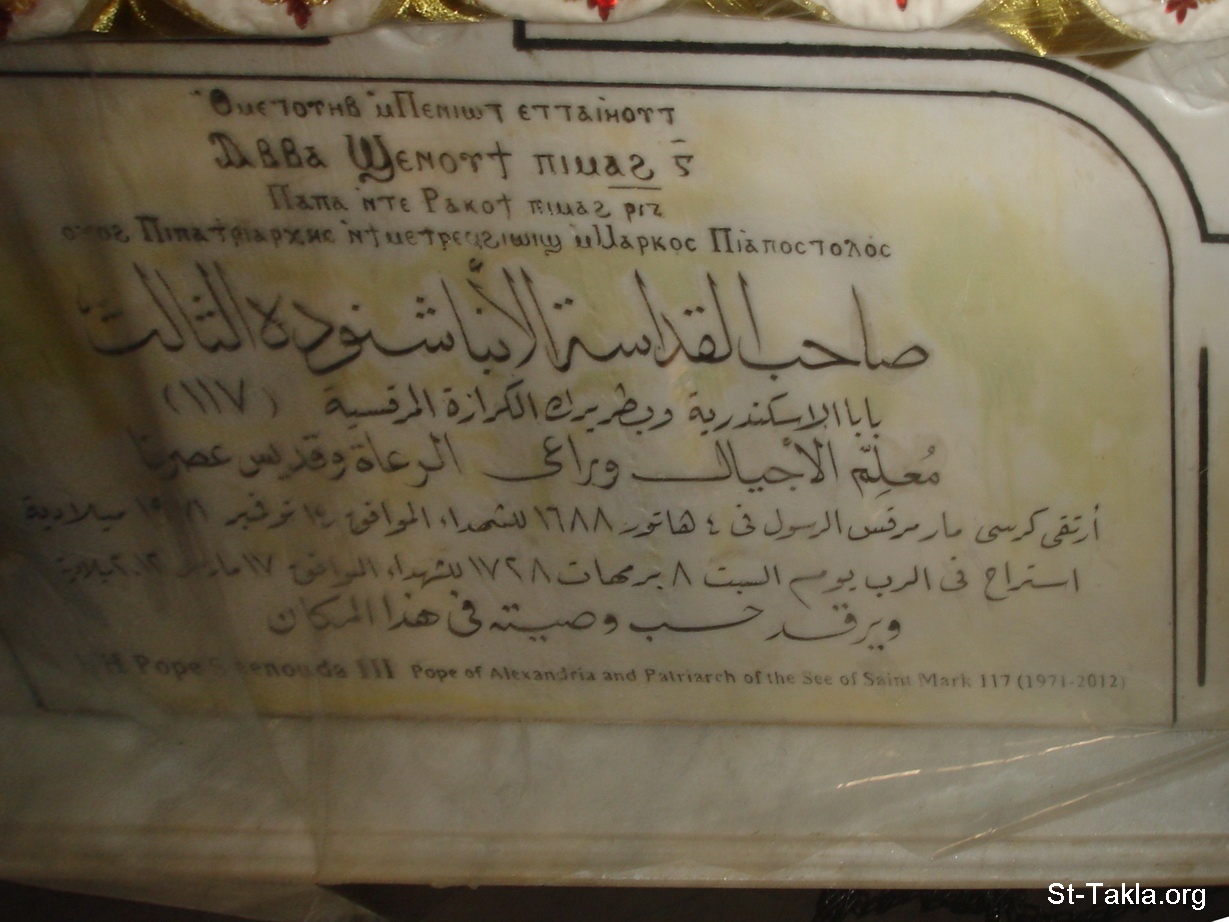 Ⲑⲙⲉⲧⲟⲧⲏⲃ ⲙ̀Ⲡⲉⲛⲓⲱⲧ ⲉⲧⲧⲁⲓⲏⲟⲩⲧ
Ⲁⲃⲃⲁ Ϣⲉⲛⲟⲩϯ ⲡⲓⲙⲁϩ ⲅ̅
Ⲡⲁⲡⲁ ⲛ̀ⲧⲉ Ⲣⲁⲕⲟϯ ⲡⲓⲙⲁϩ ⲣⲓⲍ
ⲟⲩⲟϩ Ⲡⲓⲡⲁⲧⲣⲓⲁⲣⲭⲏⲥ ⲛ̀ϯⲙⲉⲧⲣⲉϥϩⲓⲱⲓϣ ⲙ̀Ⲙⲁⲣⲕⲟⲥ Ⲡⲓⲁⲡⲟⲥⲧⲟⲗⲟⲥ
صاحب القداسة الأنبا شنوده الثالث
بابا الإسكندرية وبطريرك الكرازة المرقسية (١١٧)
مُعلِمّ الأجيال وراعى الرعاة وقديس عصرنا
أرتقى كرسى مار مرقس الرسول فى ٤ هاتور ١٦٨٨ للشهداء الموافق ١٤ نوفمبر ١٩٧١ ميلادية
استراح فى الرب يوم السبت ٨ برمهات ١٧٢٨ للشهداء الموافق ١٧ مارس ٢٠١٢ ميلادية
ويرقد حسب وصيته فى هذا المكان
H.H Pope Shenouda III Pope of Alexandria and Patriarch of the See of Saint Mark 117 (1971-2012)
St-Takla.org